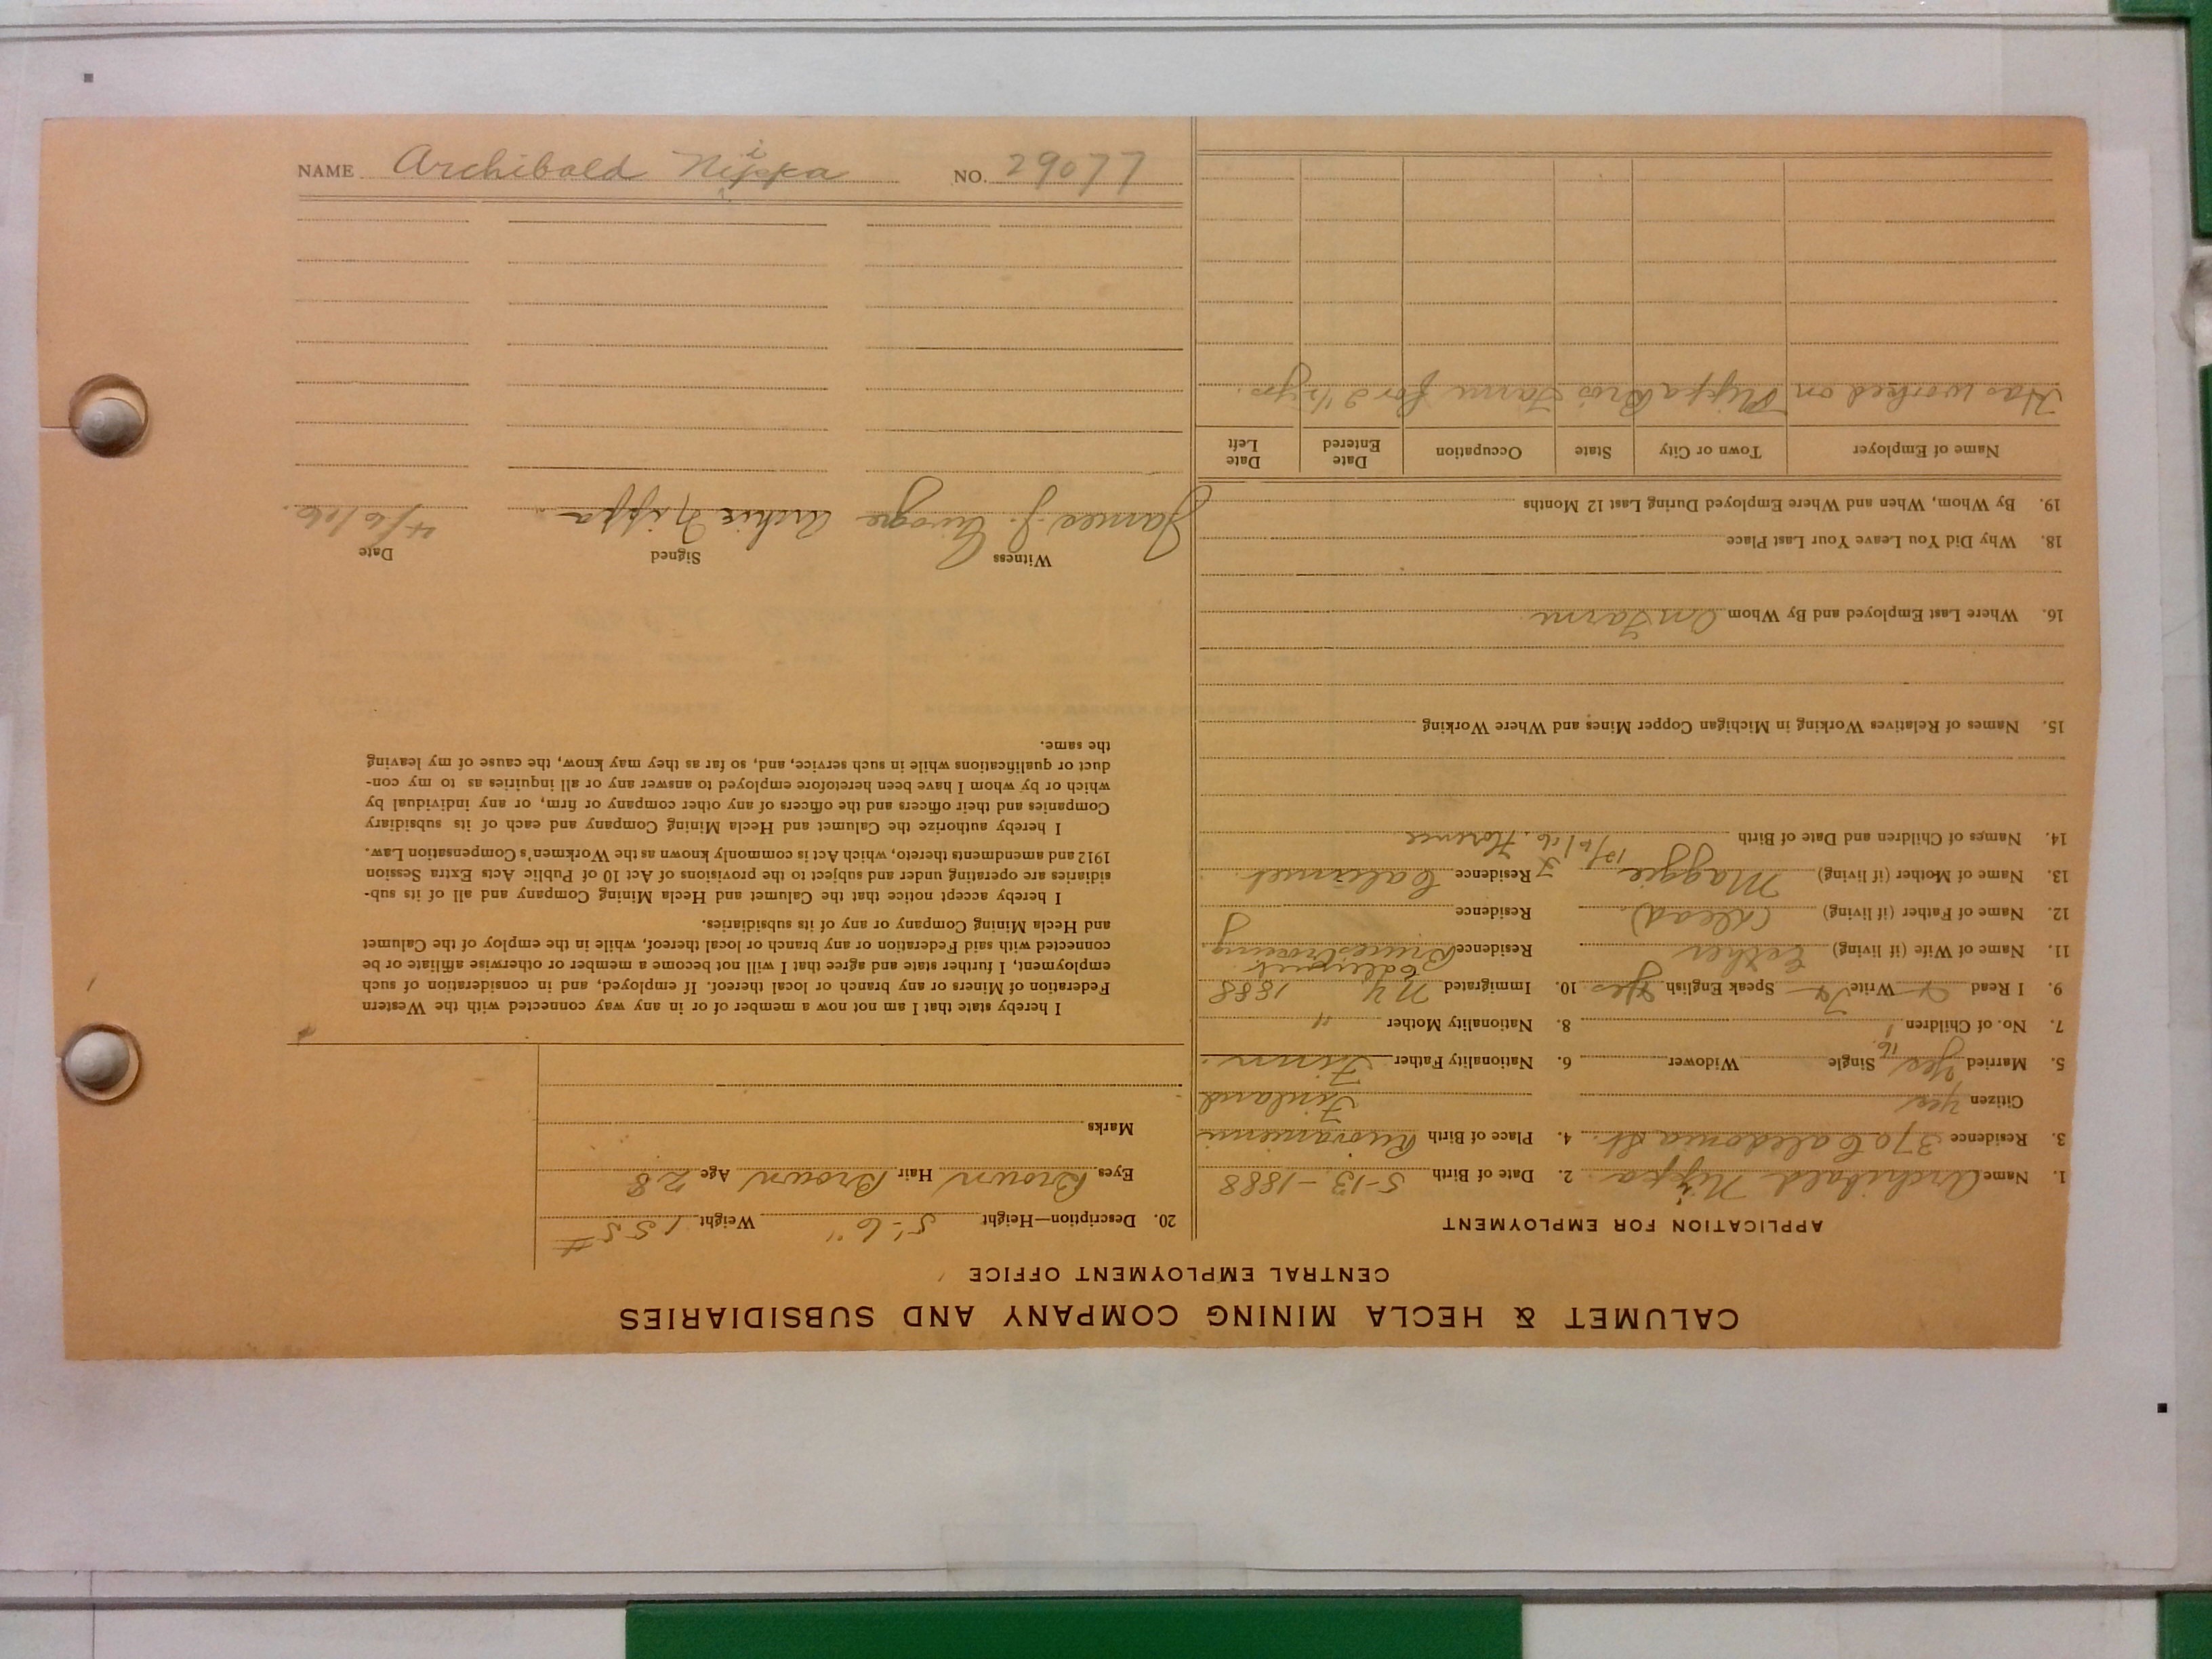 NAME Archibald Niippa NO. 29077
CALUMET & HECLA MINING COMPANY AND SUBSIDIARIES
CENTRAL EMPLOYMENT OFFICE
APPLICATION FOR EMPLOYMENT
1. Name Archibald Niippa 2. Date of Birth 5-13-1888
3. Residence 370 Caledonia St. 4. Place of Birth
Citizen Yes Finland
5. Married Yes Single Widower 6. Nationality Father Finn.
7. No. of Children 1 8. Nationality Mother "
9. I Read Write Speak English Yes 10. Immigrated N.Y. 1888
Calumet
11. Name of Wife (if living) Esther Residence Bruces Crossing
12. Name of Father (if living) (Dead) Residence
13. Name of Mother (if living) Maggie Residence Calumet
14. Names of Children and Date of Birth Florence
15. Names of Relatives Working in Michigan Copper Mines and Where Working
16. Where Last Employed and By Whom On Farm
18. Why Did You Leave Your Last Place
19. By Whom, When and Where Employed During Last 12 Months
Name of Employer Town or City State Occupation Date Entered Date Left
Has worked on Nippa Bros Farm for 2 1/2 yrs.
20. Description—Height 5'-6" Weight 155#
Eyes Brown Hair Brown Age 28
Marks
I hereby state that I am not now a member of or in any way connected with the Western
Federation of Miners or any branch or local thereof. If employed, and in consideration of such
employment, I further state and agree that I will not become a member or otherwise affiliate or be
connected with said Federation or any branch or local thereof, while in the employ of the Calumet
and Hecla Mining Company or any of its subsidiaries.
I hereby accept notice that the Calumet and Hecla Mining Company and all of its sub-
sidiaries are operating under and subject to the provisions of Act 10 of Public Acts Extra Session
1912 and amendments thereto, which Act is commonly known as the Workmen's Compensation Law.
I hereby authorize the Calumet and Hecla Mining Company and each of its subsidiary
Companies and their officers and the officers of any other company or firm, or any individual by
which or by whom I have been heretofore employed to answer any or all inquiries as to my con-
duct or qualifications while in such service, and, so far as they may know, the cause of my leaving
the same.
Witness Signed Date
James J. Archie Nippa 4/6/16.